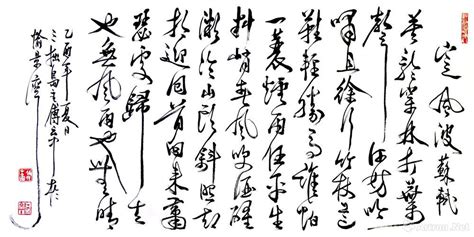 定風波蘇軾
莫聽穿林打葉
聲何妨吟
嘯且徐行竹杖芒
鞋輕勝馬誰怕
一蓑煙雨任平生
料峭春風吹酒醒
微冷山頭斜照却
相迎回首向來蕭
瑟處歸去
也無風雨也無晴
乙酉年夏日